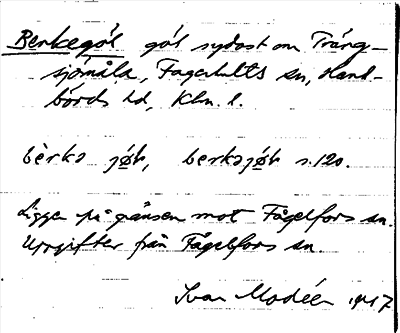 Berkegöl göl sydost om Trång-
sjömåla, Fagerhults sn, Hand-
börds hd, Klm. l.
bèrkə jø̄l, berkəjø̄l s. 120.
Ligger på gränsen mot Fågelfors sn.
Uppgifter från Fågelfors sn.
Ivar Modéer 1917